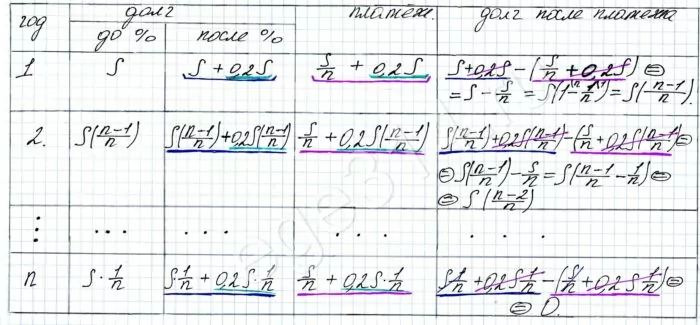 год долг платёж. долг после платежа
до % после %
1 S S + 0,2S S/n + 0,2S S+0,2S − (S/n + 0,2S) ⊜
= S − S/n = S(1 − 1/n) = S((n−1)/n).
2. S((n−1)/n) S((n−1)/n)+0,2S((n−1)/n) S/n + 0,2S((n−1)/n) S((n−1)/n)+0,2S((n−1)/n)−(S/n + 0,2S((n−1)/n)) ⊜
⊜ S((n−1)/n) − S/n = S((n−1)/n − 1/n) ⊜
⊜ S((n−2)/n)
⋮ ... ... ... ...
n S·1/n S·1/n + 0,2S·1/n S/n + 0,2S·1/n S·1/n + 0,2S·1/n − (S/n + 0,2S·1/n) ⊜
⊜ 0.